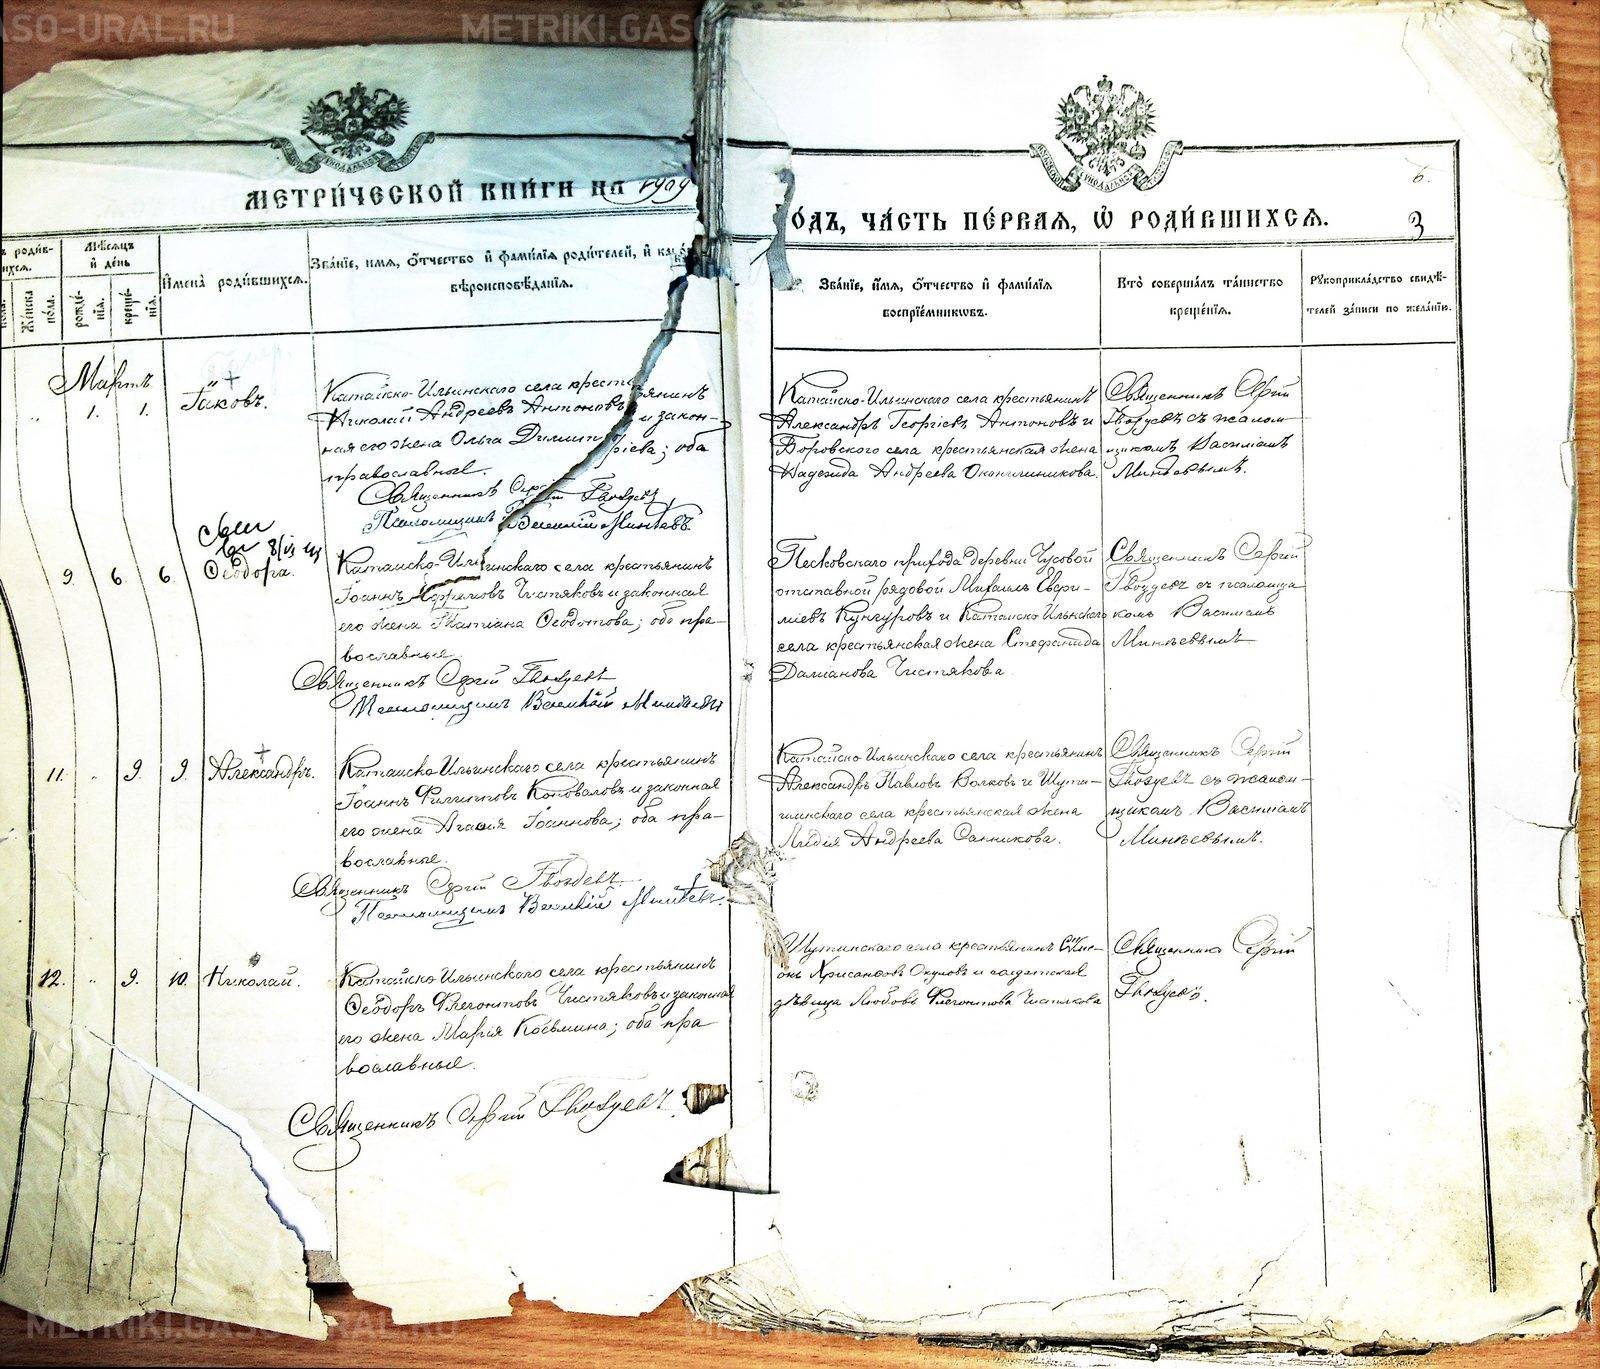 METRIKI.GASO-URAL.RU
МЕТРИ́ЧЕСКОЙ КНИ́ГИ НА 1909
О́ДЪ, ЧА́СТЬ ПЕ́РВАЯ, Ѡ РОДИ́ВШИХСЯ.
3
Мѣсяцъ и день
рожде́нїя.
креще́нїя.
Женска по́ла.
Имена̀ роди́вшихся.
Зва́нїе, имя, ѻтчество и фами́лїя роди́телей, и како́
вѣроисповѣ́данїя.
Зва́нїе, имя, ѻтчество и фами́лїя
воспрїе́мникѡвъ.
Кто̀ соверша́лъ та́инство
креще́нїя.
Рукоприкла́дство свидѣ́-
телей за́писи по жела́нїю.
Мартъ
1. 1.
Іаковъ.
Катайско-Ильинскаго села крестьянинъ
Николай Андреевъ Антоновъ и закон-
ная его жена Ольга Димитріева; оба
православные.
Священникъ Сергій Гвоздевъ
Псаломщикъ Василій Минѣевъ
Катайско-Ильинскаго села крестьянинъ
Александръ Георгіевъ Антоновъ и
Боровского села крестьянская жена
Надежда Андреева Оконишникова.
Священникъ Сергій
Гвоздевъ съ псалом-
щикомъ Василіемъ
Минѣевымъ.
9. 6. 6.
Ѳеодора.
Катайско-Ильинскаго села крестьянинъ
Іоаннъ Ефремовъ Чистяковъ и законная
его жена Татіана Ѳеодотова; оба пра-
вославные.
Священникъ Сергій Гвоздевъ
Псаломщикъ Василій Минѣевъ
Песковскаго прихода деревни Чусовой
отставной рядовой Михаилъ Евфи-
міевъ Кунгуровъ и Катайско-Ильинскаго
села крестьянская жена Стефанида
Даміанова Чистякова
Священникъ Сергій
Гвоздевъ съ псаломщи
комъ Василіемъ
Минѣевымъ
11. 9. 9.
Александръ.
Катайско-Ильинскаго села крестьянинъ
Іоаннъ Филипповъ Коноваловъ и законная
его жена Агаѳія Іоаннова; оба пра-
вославные.
Священникъ Сергій Гвоздевъ
Псаломщикъ Василій Минѣевъ.
Катайско-Ильинскаго села крестьянинъ
Александръ Павловъ Волковъ и Шути-
шинскаго села крестьянская жена
Лидія Андреева Санникова.
Священникъ Сергій
Гвоздевъ съ псалом-
щикомъ Василіемъ
Минѣевымъ.
12. 9. 10.
Николай.
Катайско-Ильинскаго села крестьянинъ
Ѳеодоръ Флегонтовъ Чистяковъ и законная
его жена Марія Косьмина; оба пра-
вославные.
Священникъ Сергій Гвоздевъ
Шутинскаго села крестьянинъ Симе-
онъ Хрисанфовъ Окуловъ и солдатская
дѣвица Любовь Флегонтова Чистякова
Священникъ Сергій
Гвоздевъ.
METRIKI.GASO-URAL.RU